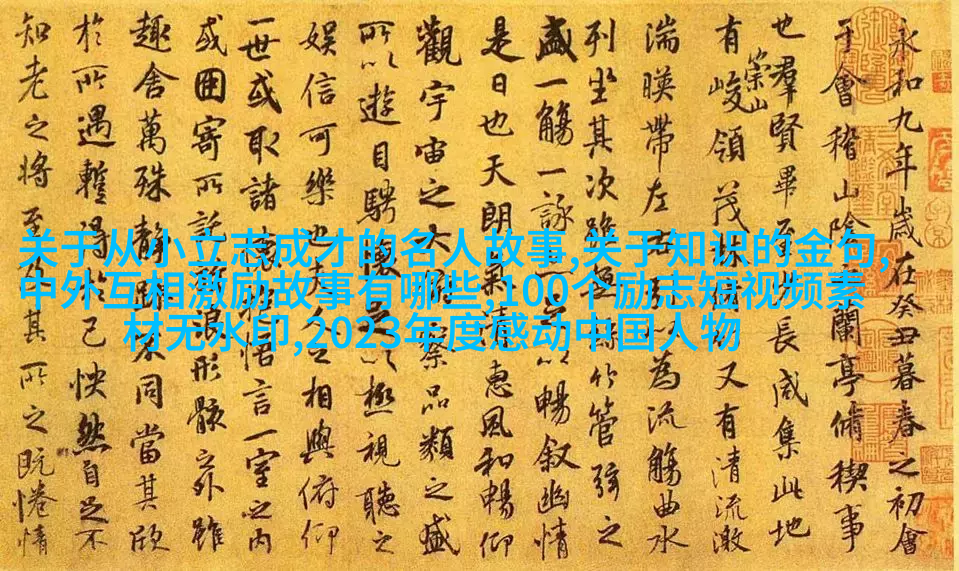 关于从小立志成才的名人故事,关于知识的金句,
中外互相激励故事有哪些,100个励志短视频素
材无水印,2023年度感动中国人物
永和九年歲在癸丑暮春之初會
于會稽山陰蘭亭脩稧事
也羣賢畢至少長咸集此地
有崇山峻領茂林又有清流激
湍暎帶左右為流觴曲水
列坐其次雖竹管弦之
盛一觴一詠以暢敘幽情
是日也天朗氣清惠風和暢仰
觀宇宙之大察品類之盛
所以遊目騁懷以極視聽之
娛信可樂也夫之相與俯仰
一世或取諸懷悟言一室之內
或因寄所託浪形骸之外雖
趣舍萬殊靜躁不同當其欣
於所遇蹔得於己怏然自足不
知老之將至其所之既惓情